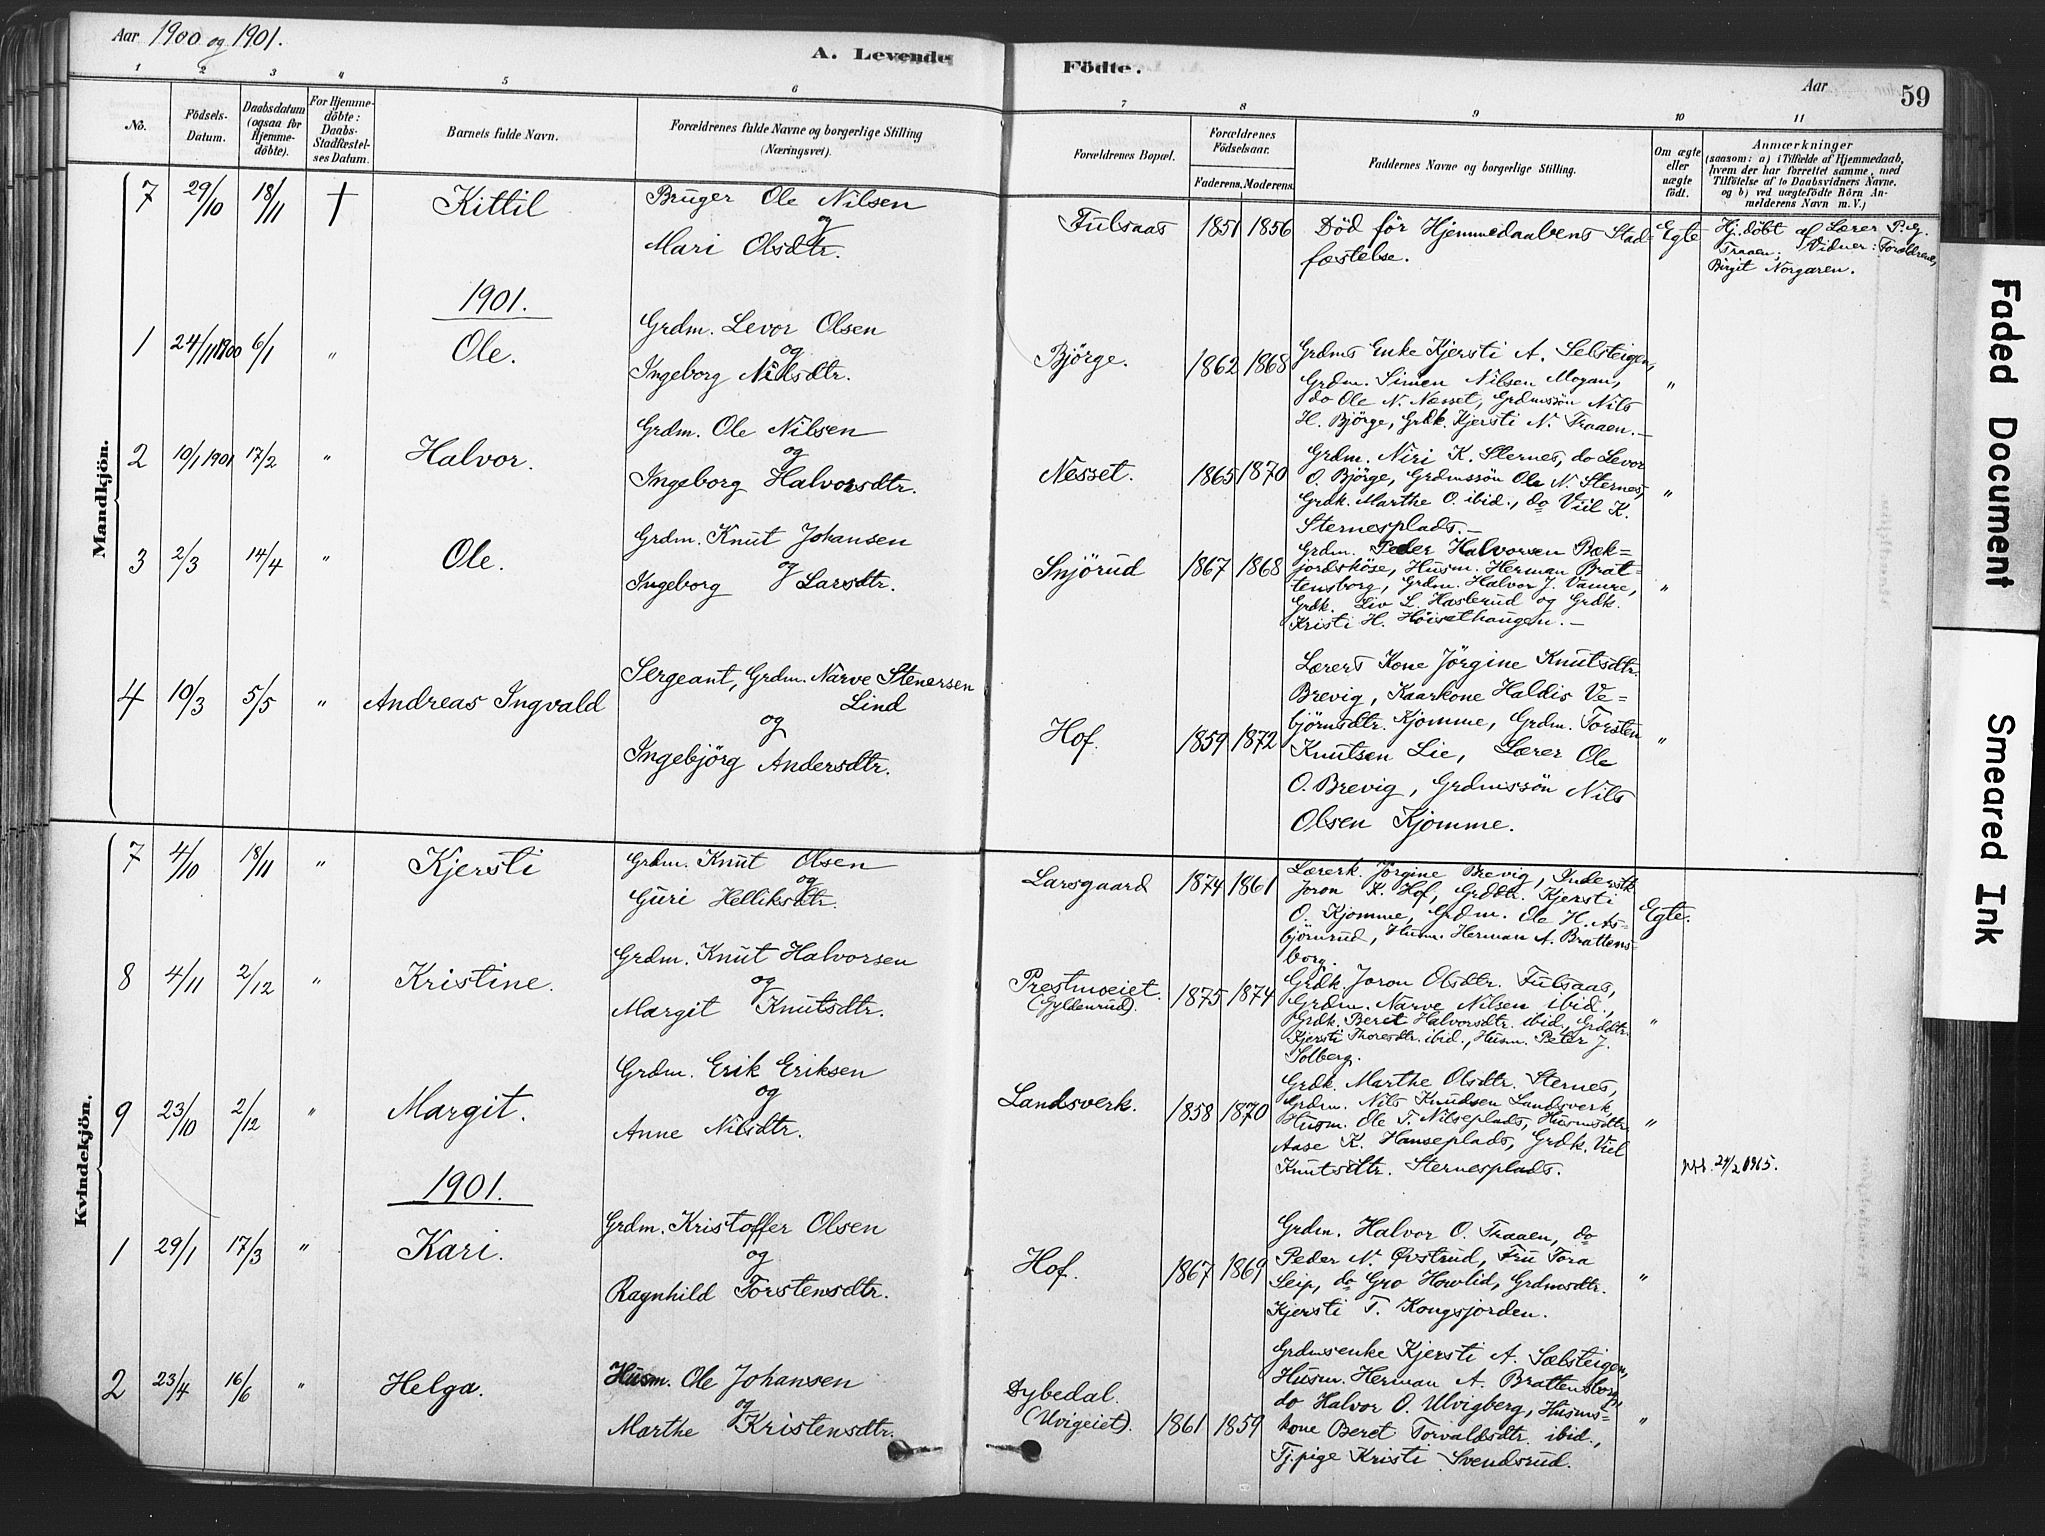 Aar 1900 og 1901.
A. Levende Födte.
Aar
59
1 2 3 " 5 6 7 8 9 10 11
No.
Födsels-
Datum.
Daabsdatum
(ogsaa for
Hjemme-
döbte).
For Hjemme-
döbte:
Daabs-
Stadfæstel-
ses Datum.
Barnets fulde Navn.
Forældrenes fulde Navne og borgerlige Stilling
(Næringsvei).
Forældrenes Bopæl.
Forældrenes
Födselsaar.
Faderens. Moderens.
Faddernes Navne og borgerlige Stilling.
Om ægte
eller
uægte
födt.
Anmærkninger
(saasom: a) i Tilfælde af Hjemmedaab,
hvem der har forrettet samme, med
Tilföielse af to Daabsvidners Navne,
og b) ved uægtefödte Börn An-
melderens Navn m. V.)
Mandkjön.
7 29/10 18/11 † Kittil
Bruger Ole Nilsen
og
Mari Olsdtr.
Fulsaas 1851 1856
Död för Hjemmedaabens Stad=
fæstelse.
Egte
Hj.döbt af Lærer P. G.
Traaen; Vidner: Forældrene,
Birgit Norgaren.
1901.
1 24/11 1900 6/1 " Ole.
Grdm. Levor Olsen
og
Ingeborg Nilsdtr.
Bjørge. 1862 1868
Grdms Enke Kjersti A. Selsteigen,
Grdm. Simen Nilsen Mogan,
do Ole N. Nesset, Grdmssön Nils
H. Bjørge, Grdk. Kjersti N. Traaen.—
"
2 10/1 1901 17/2 " Halvor.
Grdm. Ole Nilsen
og
Ingeborg Halvorsdtr.
Nesset. 1865 1870
Grdm. Niri K. Sternes, do Levor
O. Bjørge, Grdmssön Ole N. Sternes,
Grdk. Marthe O. ibid., do Viil K.
Sternesplads.—
"
3 2/3 14/4 " Ole.
Grdm. Knut Johansen
og
Ingeborg Larsdtr.
Snjörud 1867 1868
Grdm. Peder Halvorsen Bæk=
jordsköse, Husm. Herman Brat-
tensborg, Grdm. Halvor J. Vamre,
Grdk. Liv L. Haslerud og Grdk.
Kristi H. Höisethaugen.—
"
4 10/3 5/5 " Andreas Ingvald
Sergeant, Grdm. Narve Stenersen
Lind
og
Ingebjörg Andersdtr.
Hof. 1859 1872
Lærers Kone Jörgine Knutsdtr.
Brevig, Kaarkone Haldis Ve=
björnsdtr. Kjomme, Grdm. Torsten
Knutsen Lie, Lærer Ole
O. Brevig, Grdmssön Nils
Olsen Kjomme.
"
Kvindekjön.
7 4/10 18/11 " Kjersti
Grdm. Knut Olsen
og
Guri Helliksdtr.
Larsgaard 1874 1861
Lærerk. Jörgine Brevig,
Joron K. Hof, Grdbr. Kjersti
O. Kjomme, Grdm. Ole H. As-
björnrud, Husm. Herman A. Brattens-
borg.
Egte.
8 4/11 2/12 " Kristine.
Grdm. Knut Halvorsen
og
Margit Knutsdtr.
Prestmoeiet.
(Gyldenrud). 1875 1874
Grdk. Joron Olsdtr. Fulsaas,
Grdm. Narve Nilsen ibid.,
Grdk. Beret Halvorsdtr. ibid., Grddtr.
Kjersti Thoresdtr. ibid., Husm. Peter J.
Solberg.
"
9 23/10 2/12 " Margit.
Grdm. Erik Eriksen
og
Anne Nilsdtr.
Landsverk. 1858 1870
Grdk. Marthe Olsdtr. Sternes,
Grdm. Nils Knudsen Landsverk,
Husm. Ole T. Nilseplads, Husmsdtr.
Aase K. Hanseplads, Grdk. Viel
Knutsdtr. Sternesplads.
"
24/2 1965.
1901.
1 29/1 17/3 " Kari.
Grdm. Kristoffer Olsen
og
Ragnhild Torstensdtr.
Hof. 1867 1869
Grdm. Halvor O. Traaen, do
Peder N. Øvstrud, Fru Tora
Seip, do Gro Hovlid, Grdmsdtr.
Kjersti T. Kongsjorden.
"
2 23/4 16/6 " Helga.
Husm. Ole Johansen
og
Marthe Kristensdtr.
Dybedal.
(Uvigeiet). 1861 1859
Grdmsenke Kjersti A. Sælsteigen,
Husm. Herman A. Brattensborg,
do Halvor O. Ulvigberg, Husms=
kone Beret Torvaldsdtr. ibid.,
Tj.pige Kristi Svendsrud.
"
Faded Document
Smeared Ink